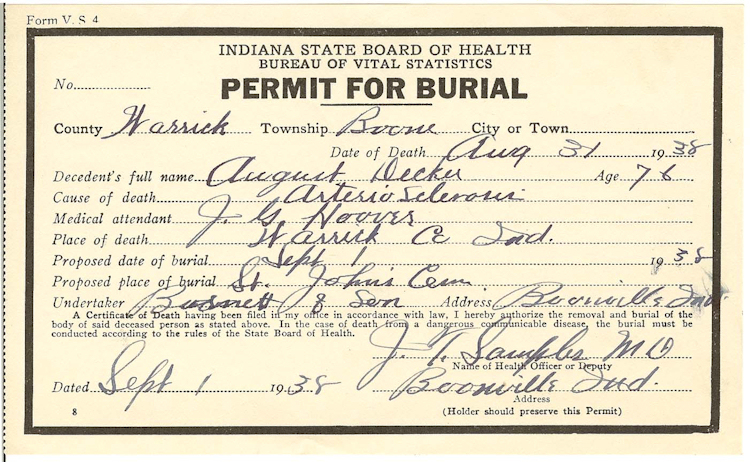 Form V. S 4
INDIANA STATE BOARD OF HEALTH
BUREAU OF VITAL STATISTICS
No.
PERMIT FOR BURIAL
County Warrick Township Boone City or Town
Date of Death Aug 31 1938
Decedent's full name August Decker Age 76
Cause of death Arterio Sclerosis
Medical attendant J. G Hoover
Place of death Warrick Co Ind.
Proposed date of burial Sept 1 1938
Proposed place of burial St. Johns Cem.
Undertaker & Son Address Boonville Ind.
A Certificate of Death having been filed in my office in accordance with law, I hereby authorize the removal and burial of the
body of said deceased person as stated above. In the case of death from a dangerous communicable disease, the burial must be
conducted according to the rules of the State Board of Health.
J. T. Samples M D
Name of Health Officer or Deputy
Dated Sept 1 1938 Boonville Ind.
Address
8 (Holder should preserve this Permit)